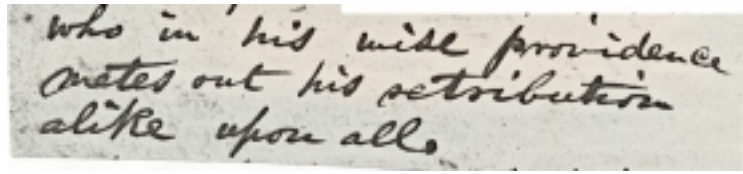 who in his wise providence
metes out his retribution
alike upon all.